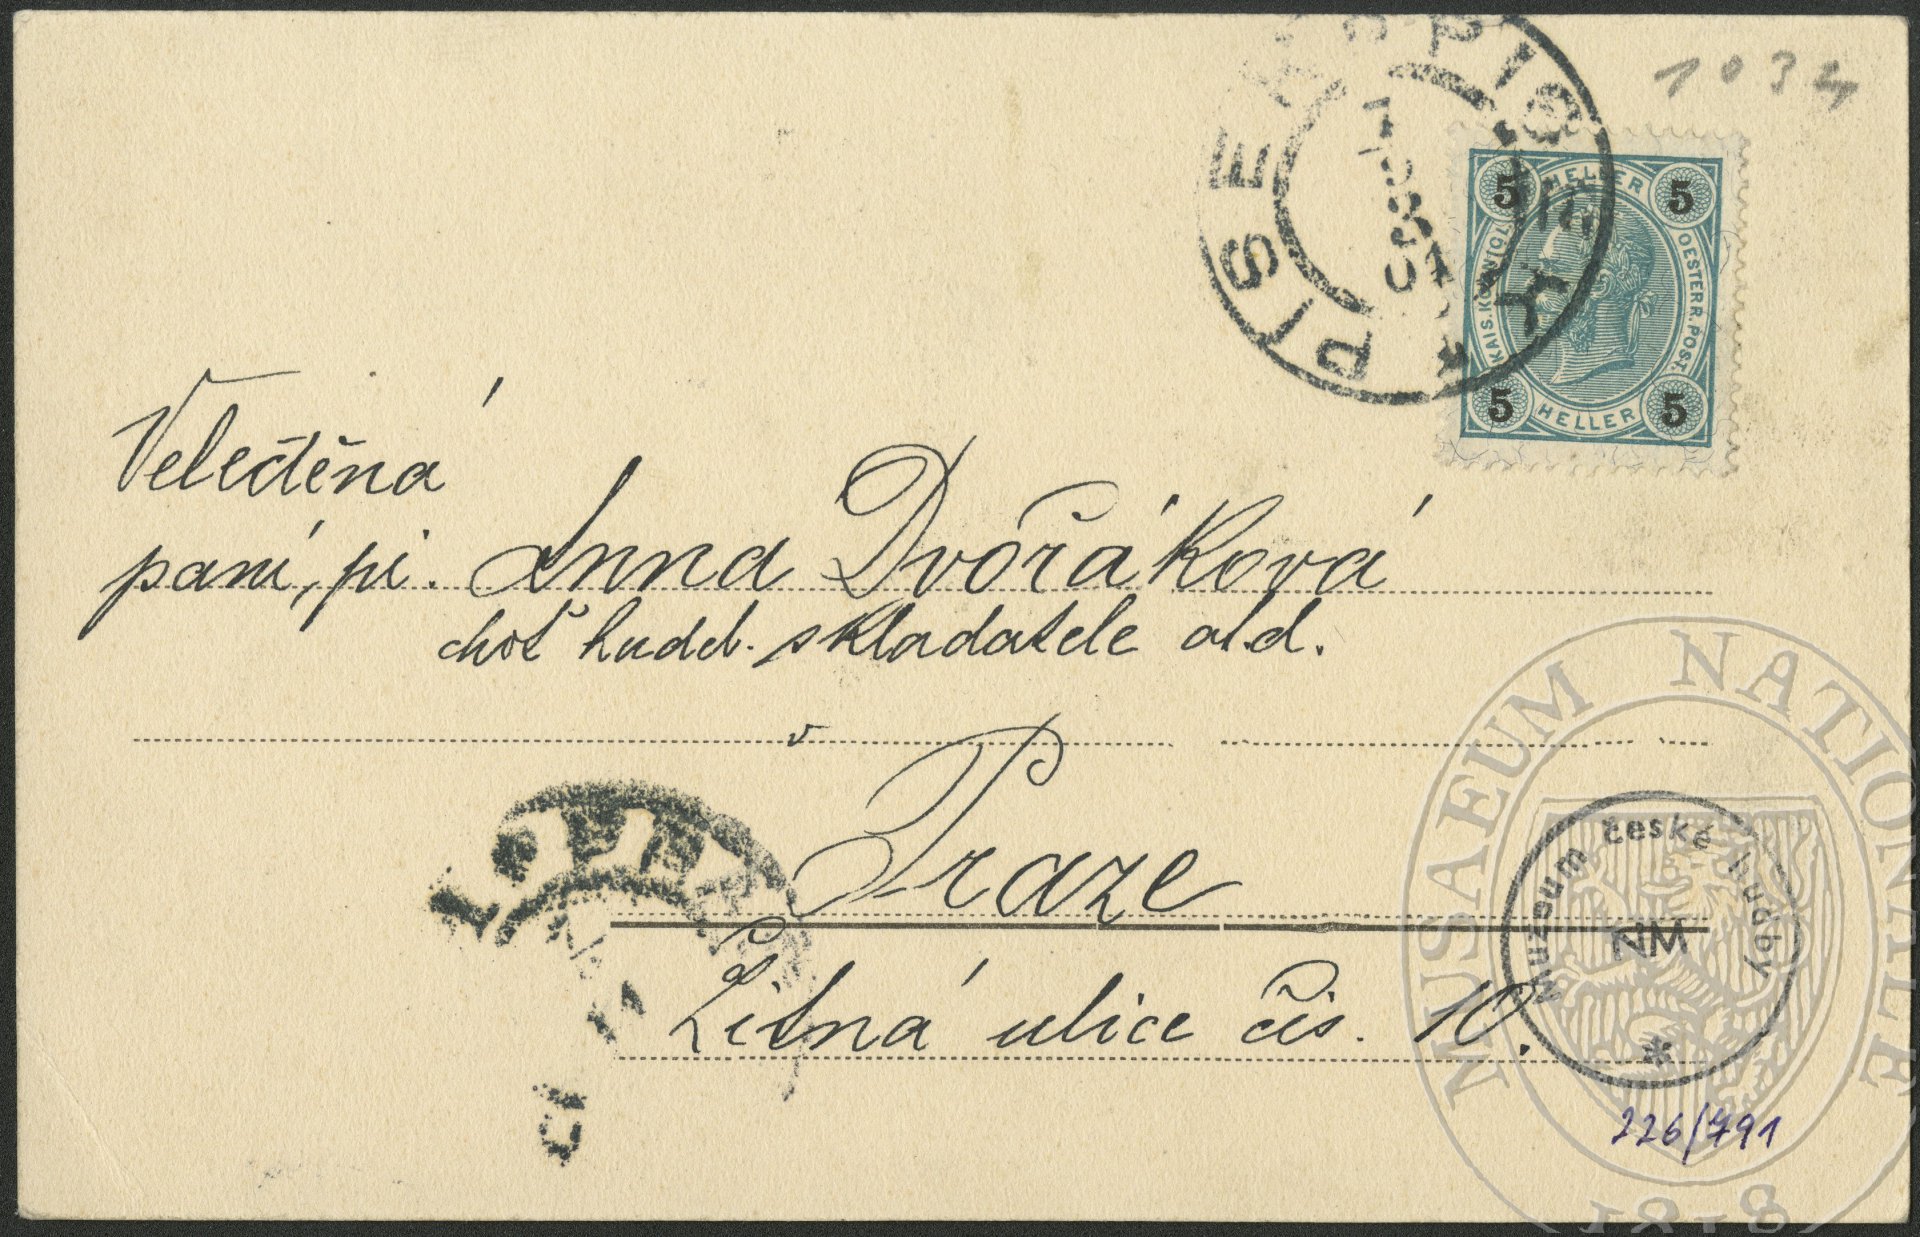 1034
PISEK PISEK
5 HELLER 5
KAIS. KÖNIGL. OESTERR. POST.
5 HELLER 5
Velectěná
paní, pí. Anna Dvořáková
choť hudeb. skladatele atd.
v
Praze
Žitná ulice čís. 10.
MUSAEUM NATIONALE
Muzeum české hudby
NM
226/791
1818